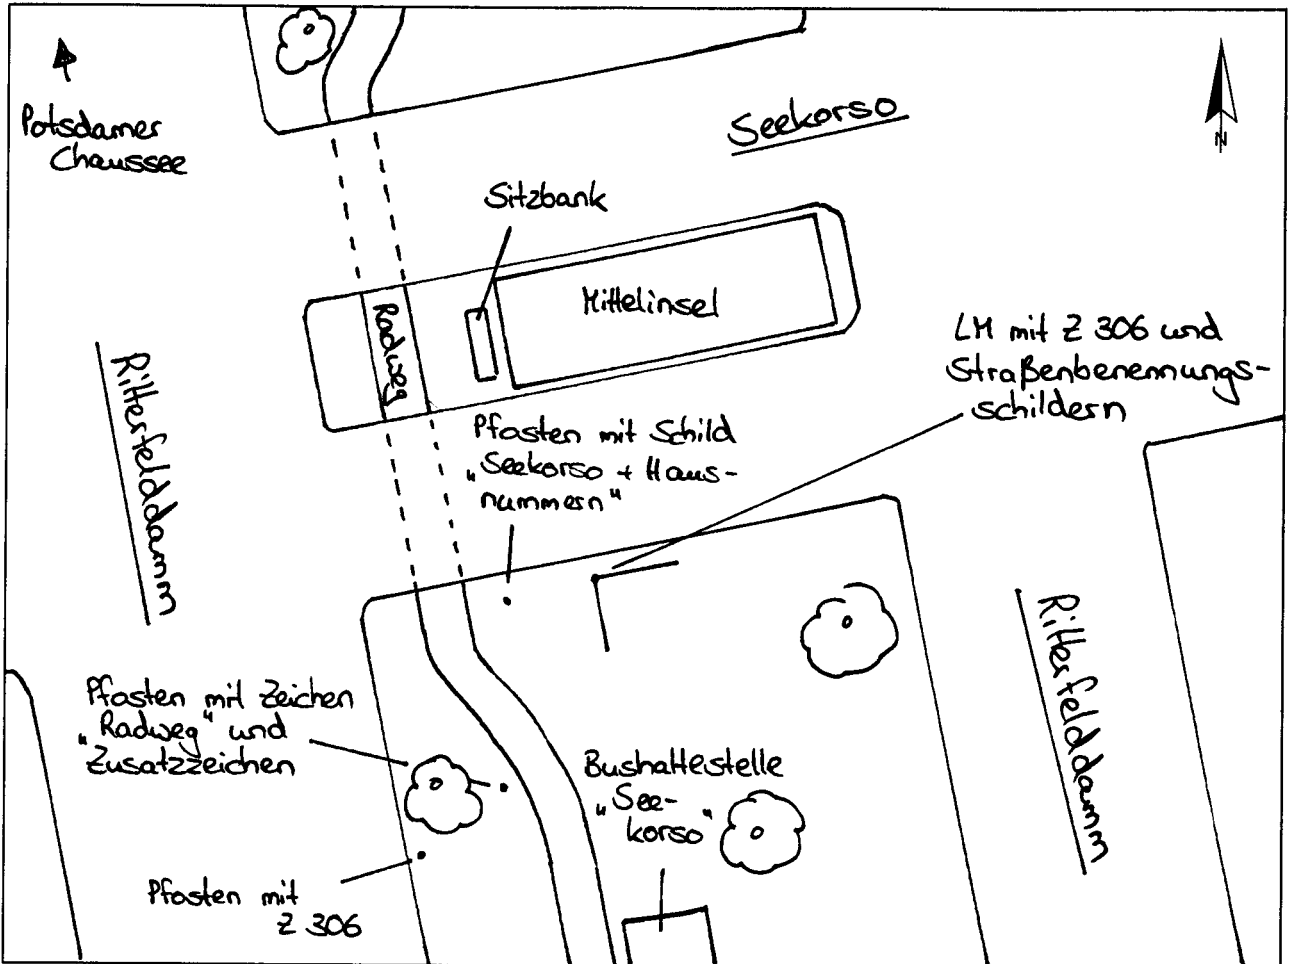 Potsdamer
Chaussee
Seekorso
N
Sitzbank
Mittelinsel
Radweg
LM mit Z 306 und
Straßenbenennungs-
schildern
Ritterfelddamm
Pfosten mit Schild
„Seekorso + Haus-
nummern“
Ritterfelddamm
Pfosten mit Zeichen
„Radweg“ und
Zusatzzeichen
Bushaltestelle
„See-
korso“
Pfosten mit
Z 306